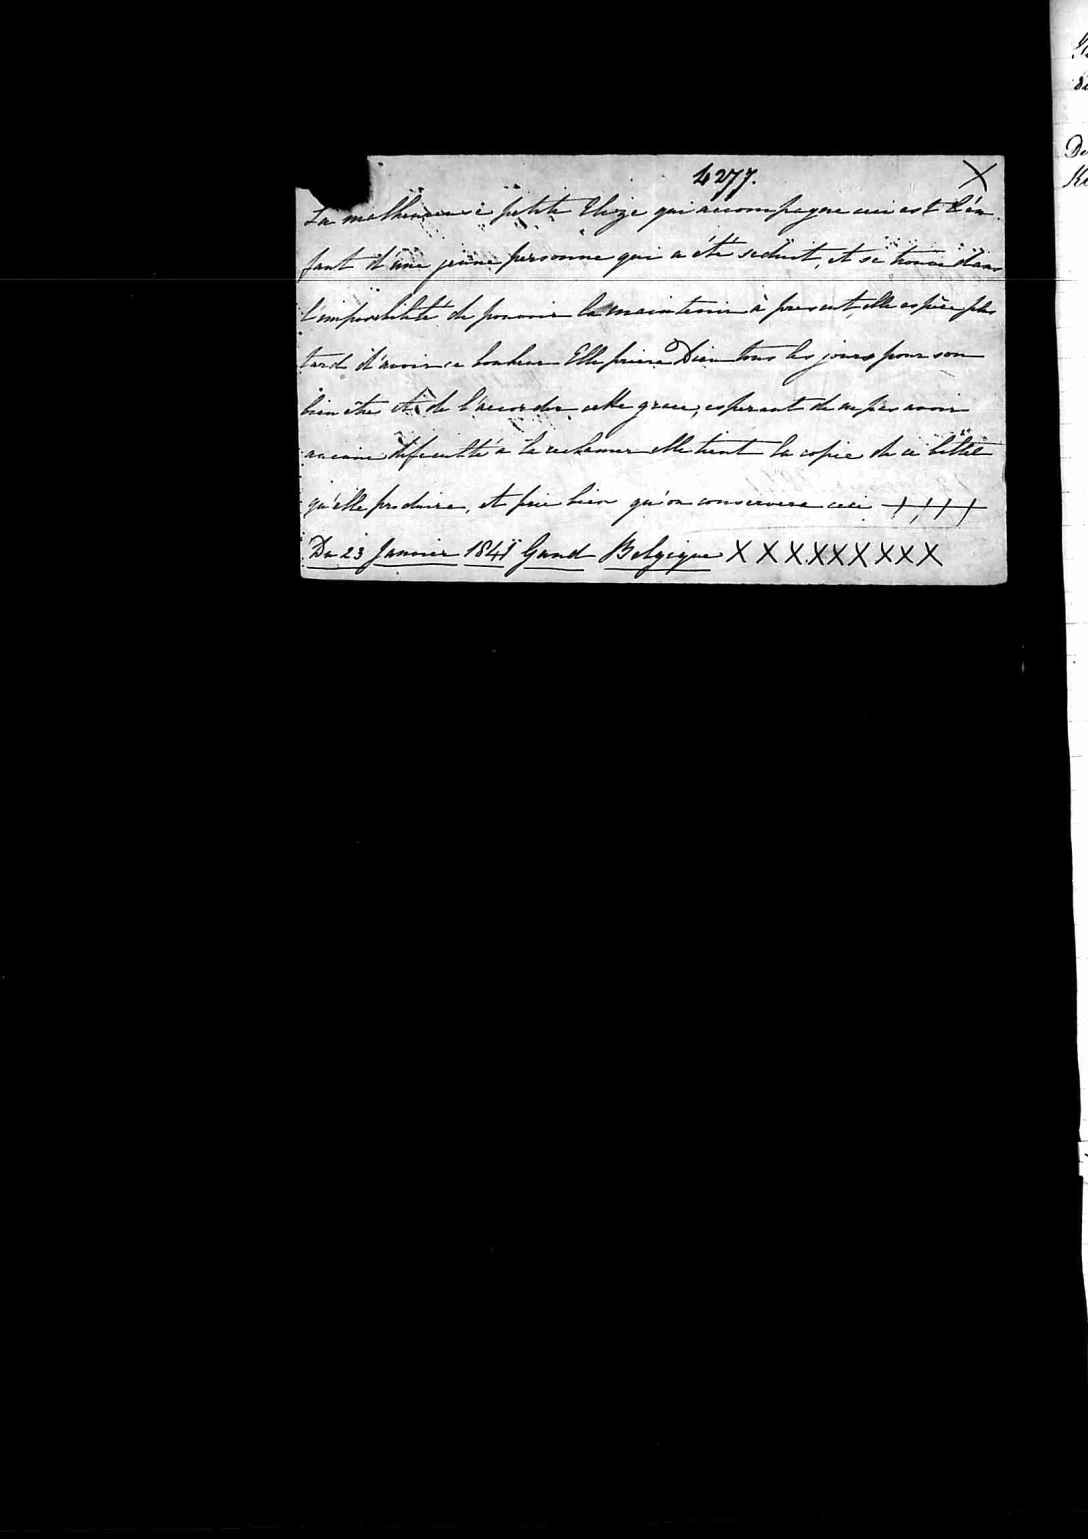 4277. X
La malheureuse petite Elize qui accompagne ceci est l'én
fant d'une jeune personne qui a été seduit, et se trouve dans
l'imposibilité de pouvoir la maintenir à present, elle espère plus
tard d'avoir ce bonheur Elle priera Dieu tous les jours pour son
bien être et de l'accorder cette grace, esperant de ne pas avoir
aucune dificulté a la reclamer elle tient la copie de ce billet
qu'elle produira, et prie bien qu'on conservera ceci
Du 23 Janvier 1841 Gand Belgique X X X X X X X X X